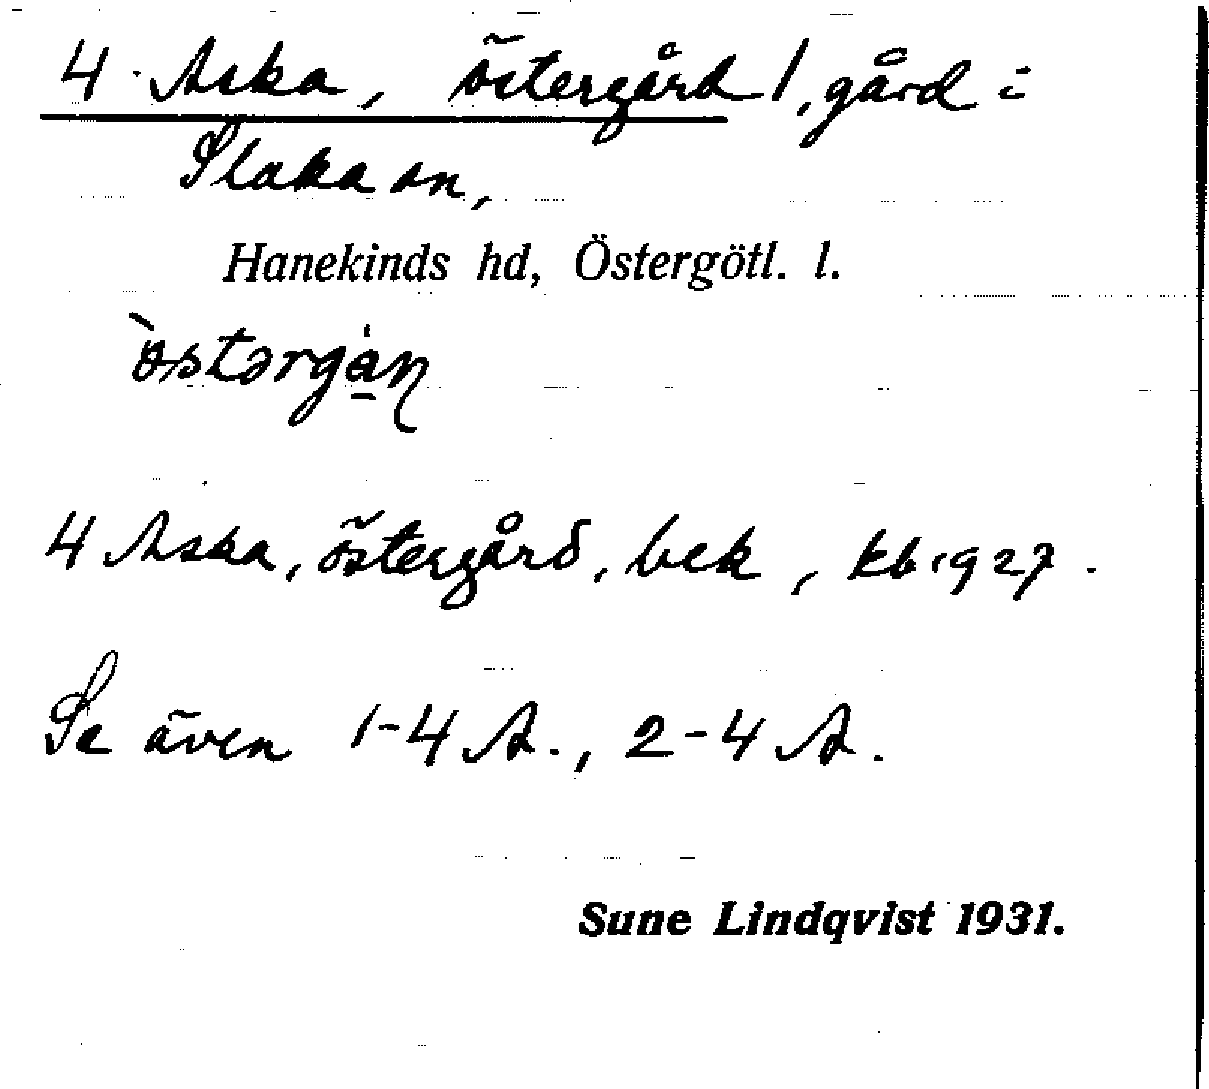 4 Aska, östergård /, gård i
Slaka sn,
Hanekinds hd, Östergötl. l.
4 Aska, östergård, bek, kb 1927.
Se även 1-4 A., 2-4 A.
Sune Lindqvist 1931.